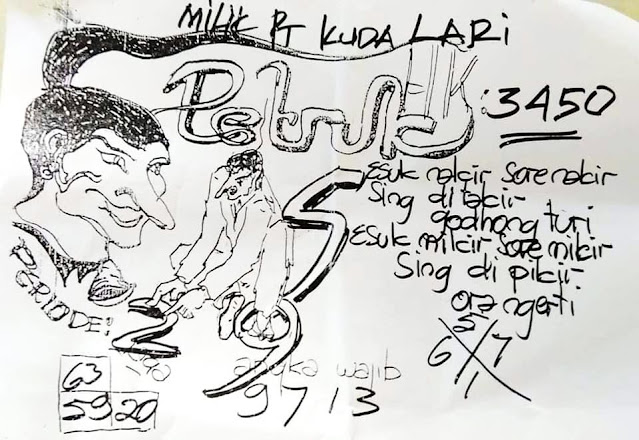 MILIK PT KUDA LARI
Petruk HK: 3450
Esuk nakir sore nakir
Sing di takir
godhong turi
Esuk mikir sore mikir
Sing di pikir
ora ngerti
PERIODE:
5
2
9
5
6 7
1
63
59 20
angka wajib
9713